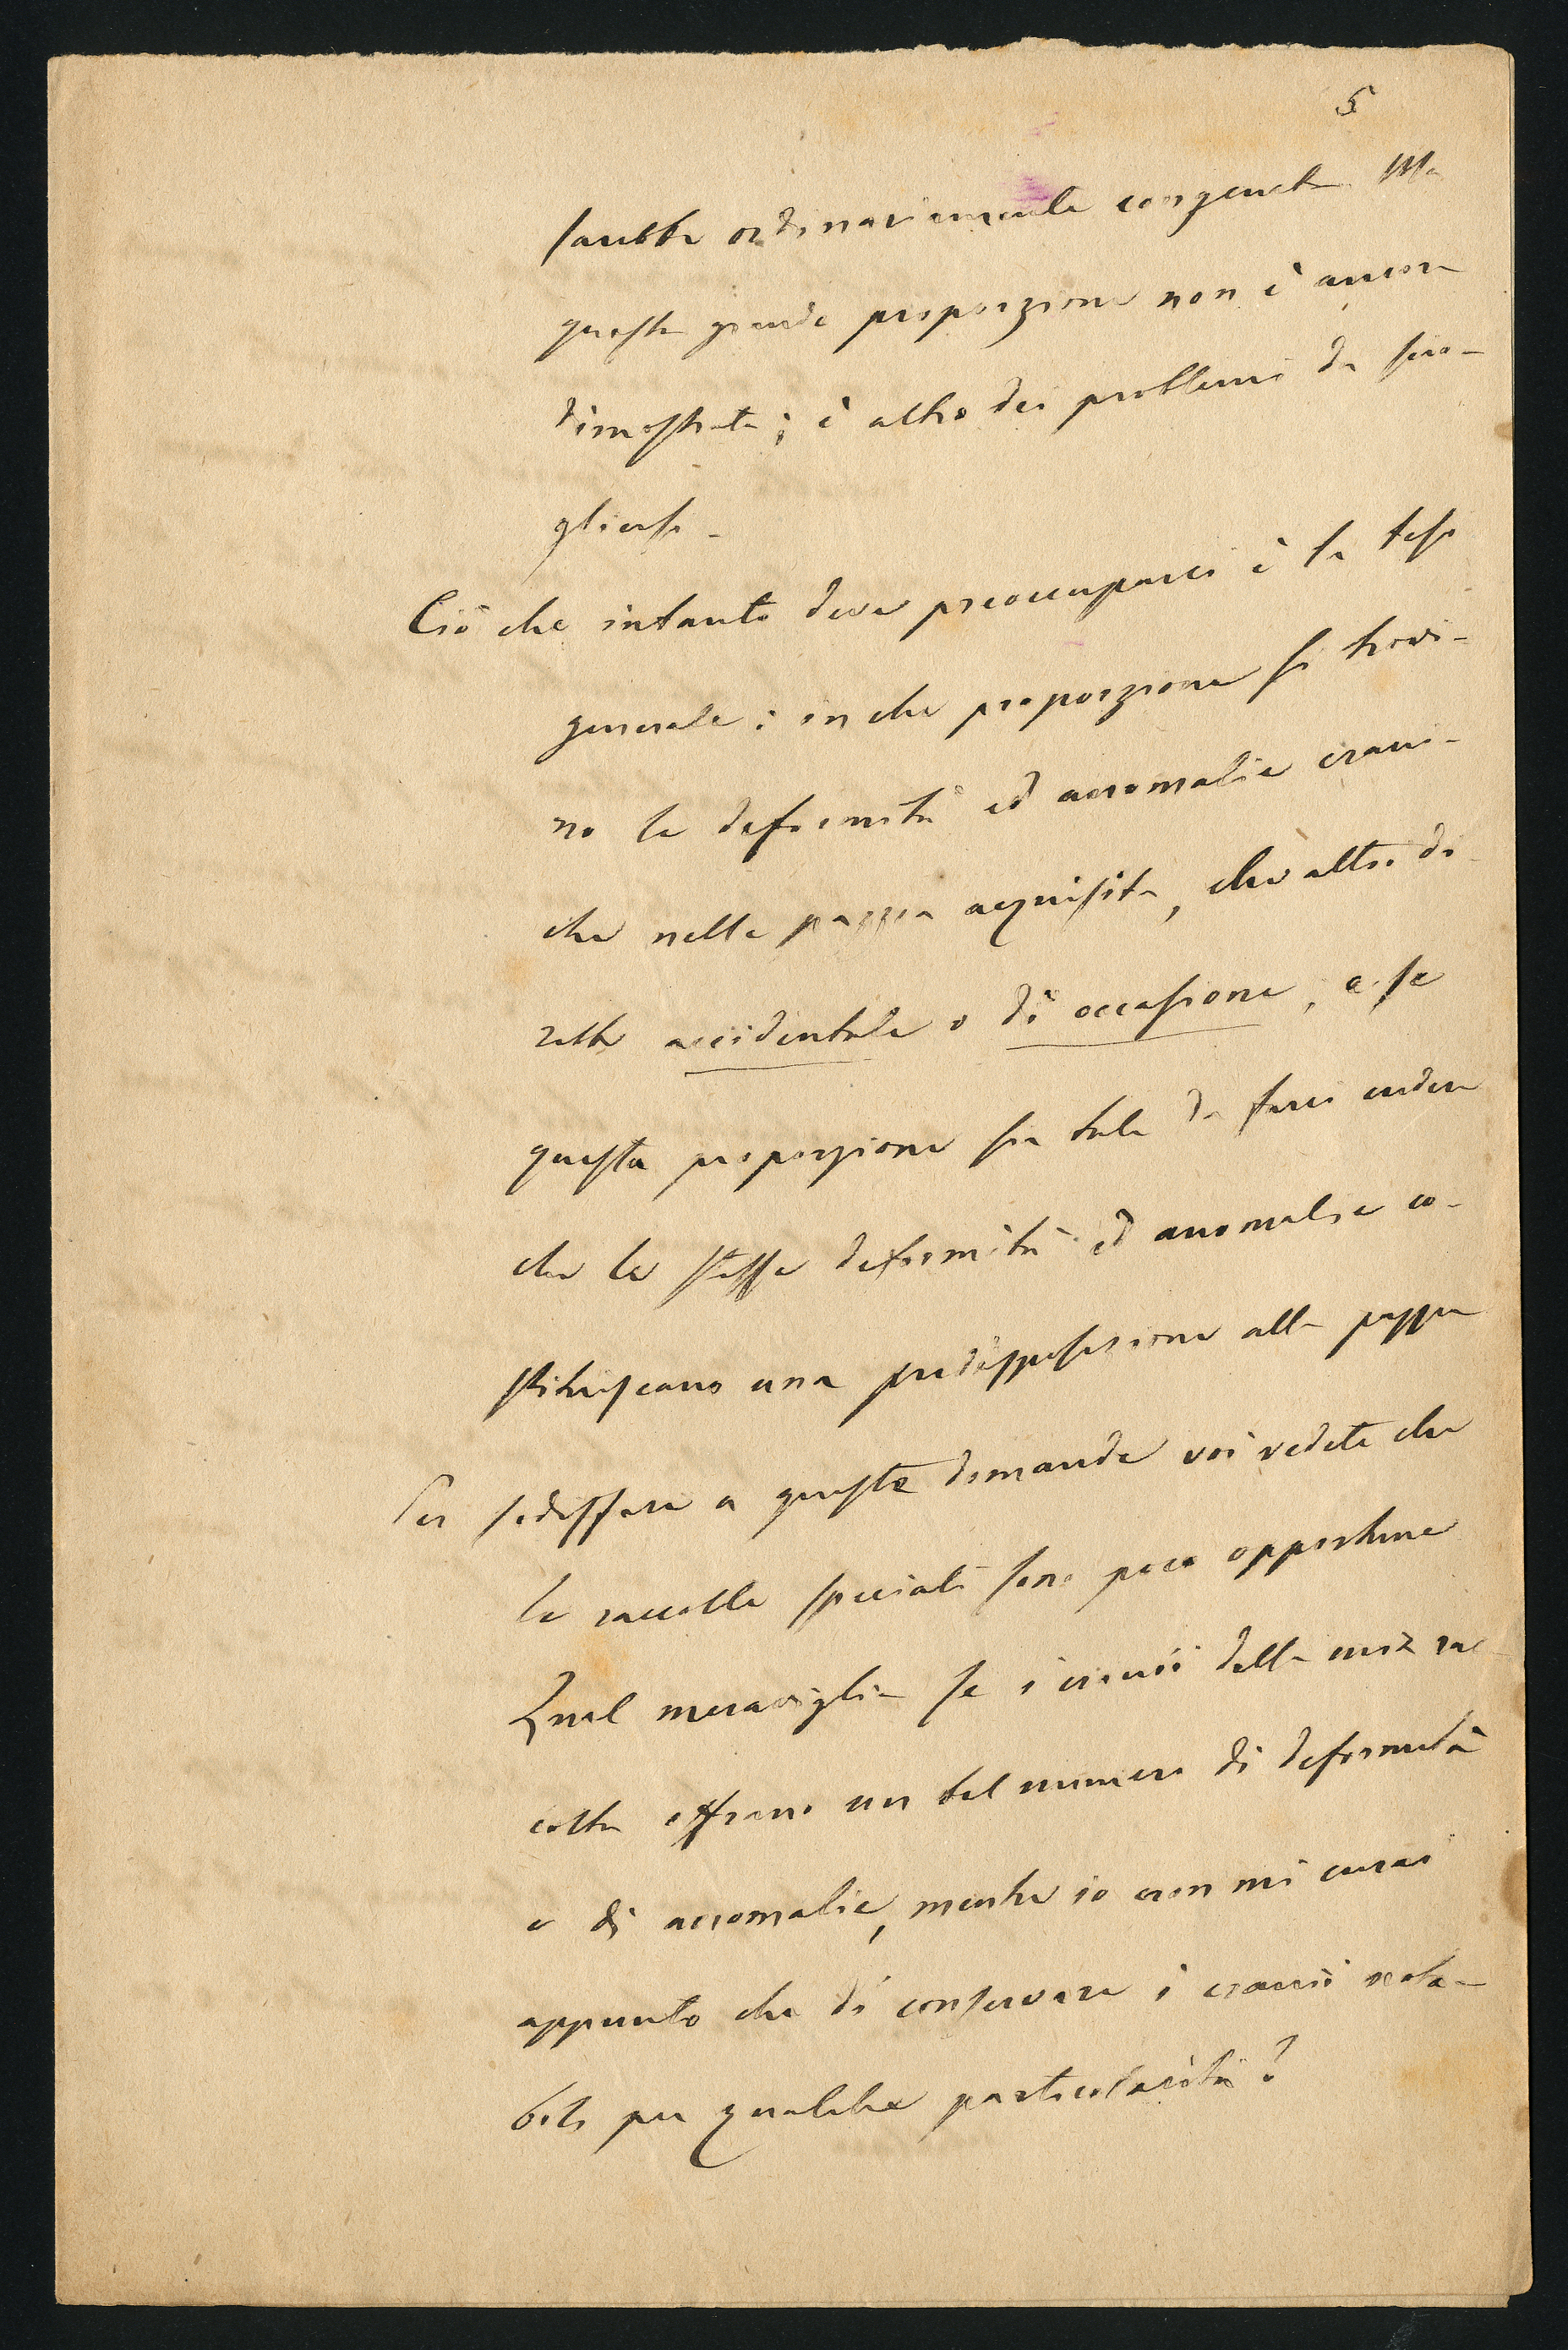 5
sarebbe ordinariamente congenita. Ma
questa grande proporzione non è ancora
dimostrata; è altro dei problemi da scio-
gliersi.
Ciò che intanto deve preoccuparci è la tesi
generale: in che proporzione si trovi-
no le deformità ed anomalie crani-
che nella pazzia acquisita, che altri di
rebbe accidentale o di occasione, e se
questa proporzione sia tale da farci credere
che le stesse deformità ed anomalie co-
stituiscano una predisposizione alla pazzia
Per sodisfare a queste domande voi vedete che
le raccolte speciali sono poco opportune
Qual meraviglia se i cranii della mia rac
colta offrano un tal numero di deformità
e di anomalie, mentre io non mi curai
appunto che di conservare i cranii nota-
bili per qualche particolarità?